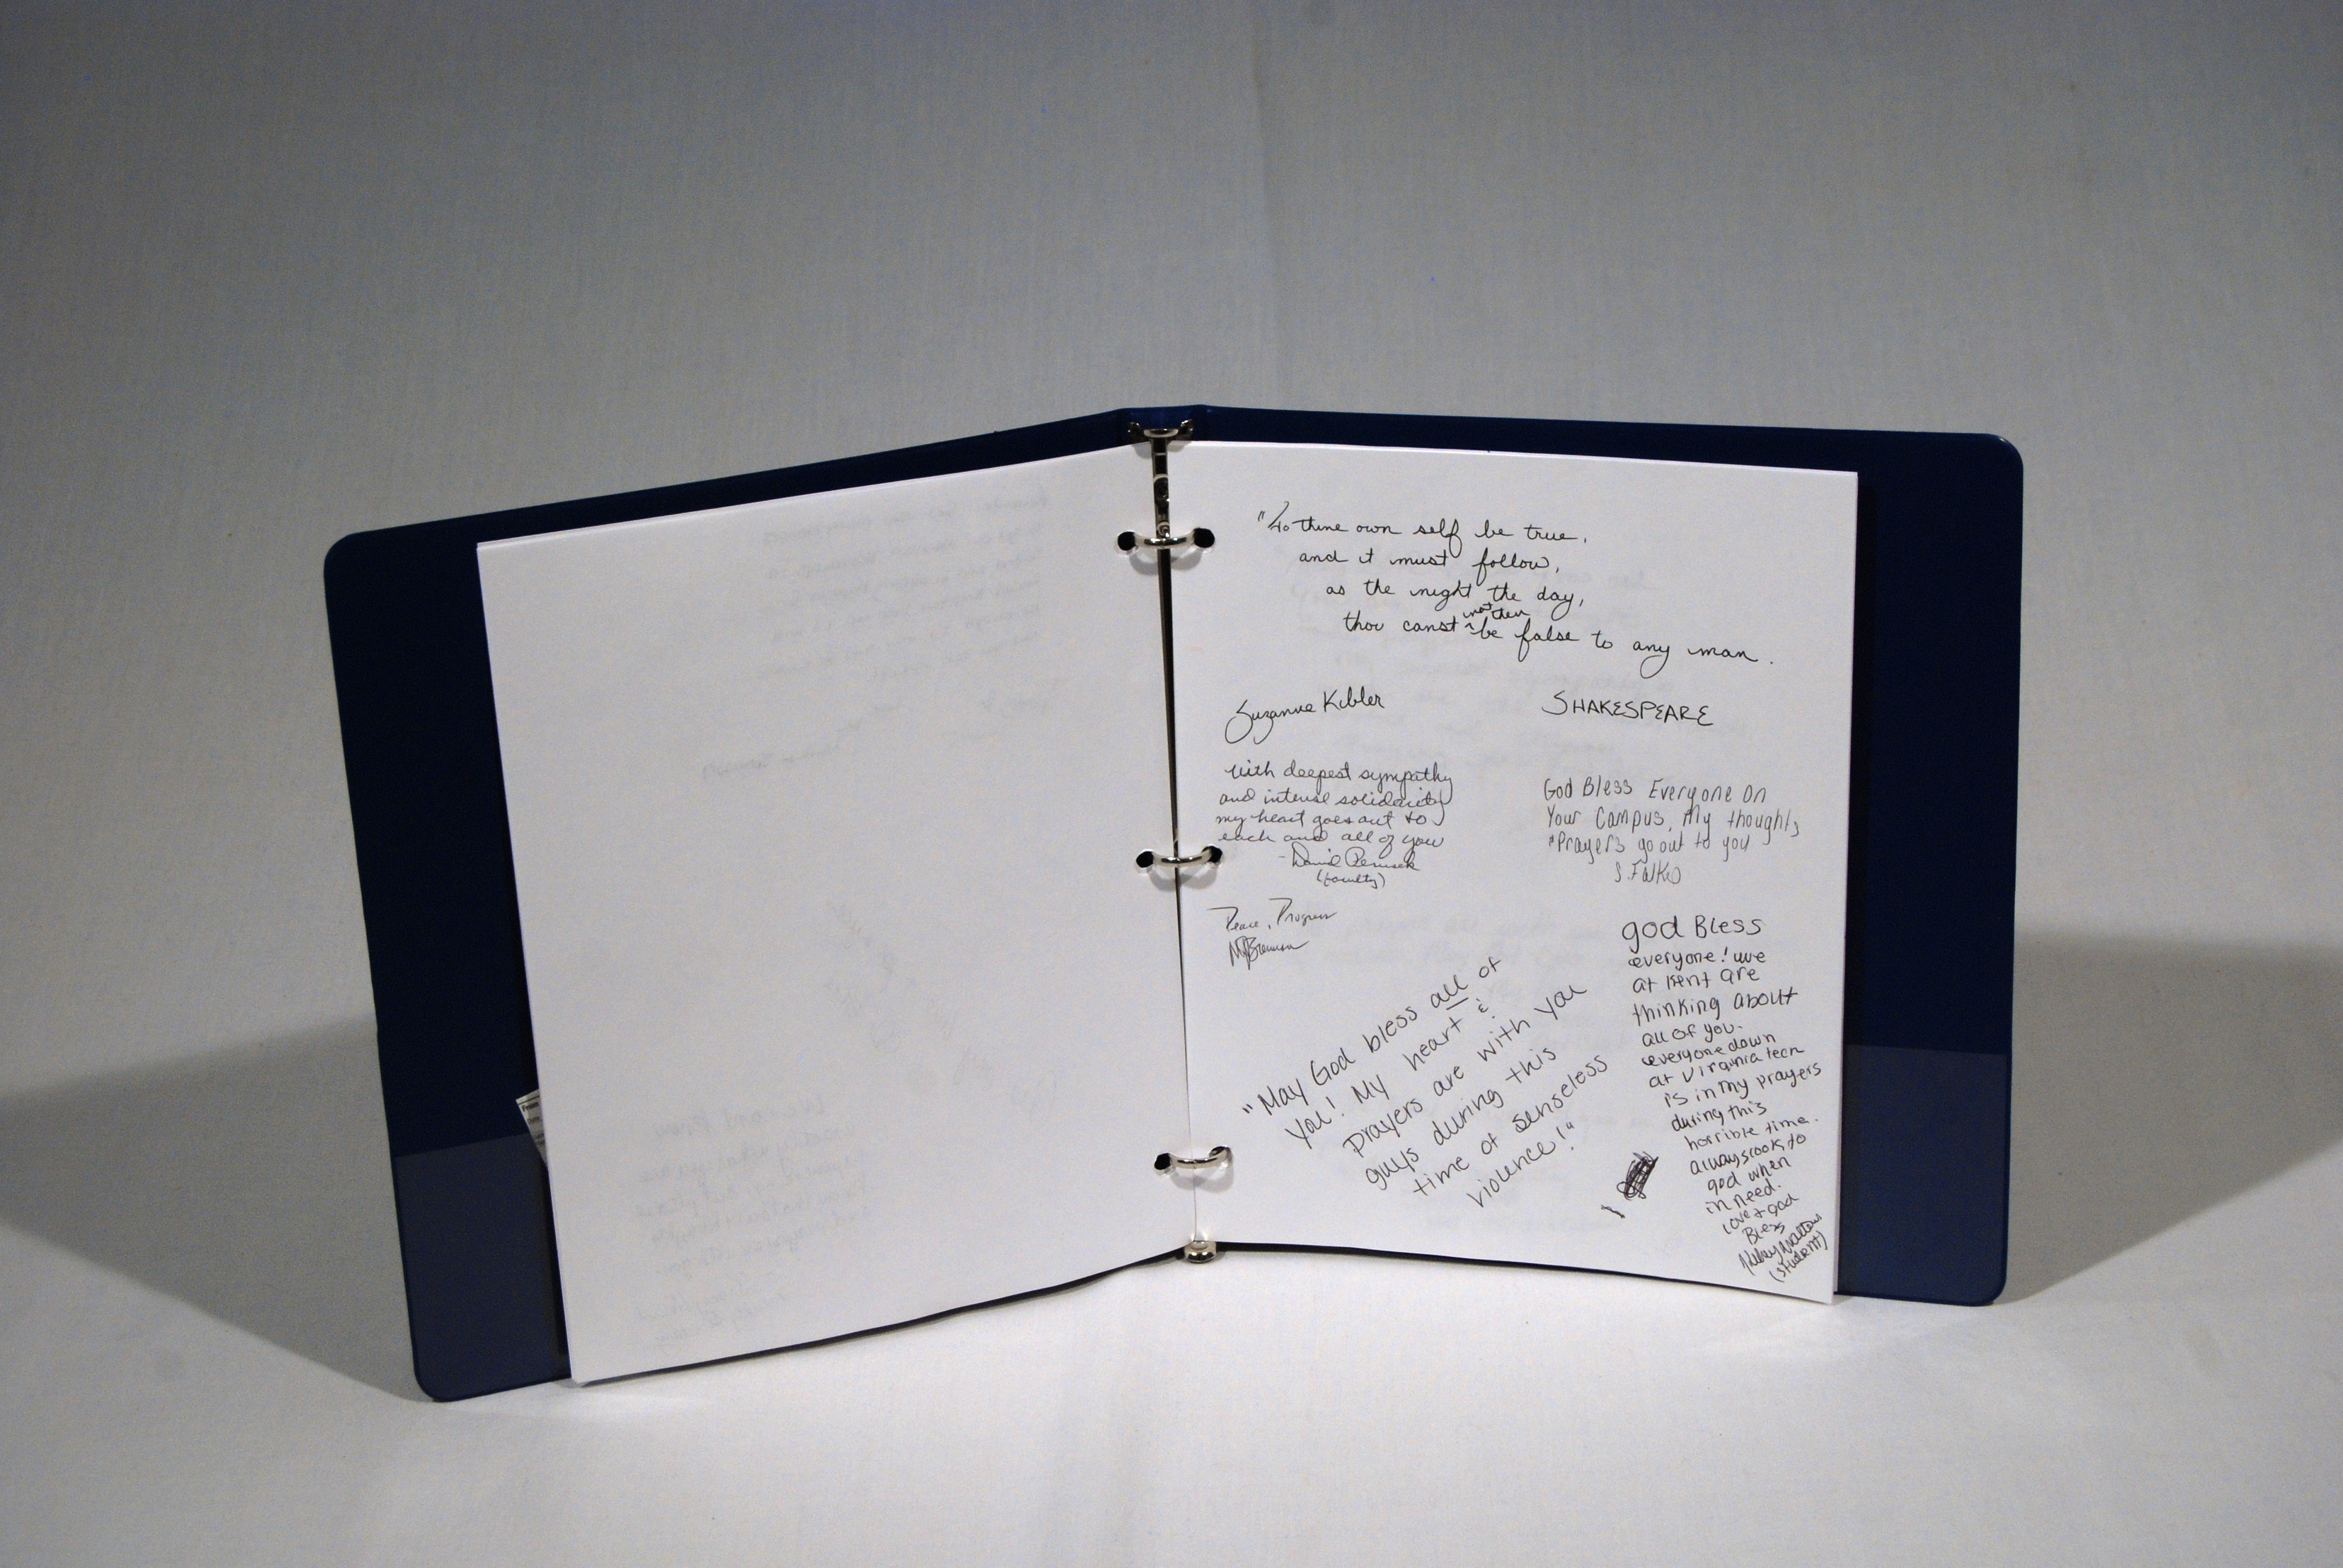 "To thine own self be true,
and it must follow,
as the night the day,
thou canst not then be false to any man.
Suzanne Kibler
SHAKESPEARE
with deepest sympathy
and intense solidarity
my heart goes out to
each and all of you
- David
(faculty)
God Bless Everyone On
Your Campus, My thoughts
+Prayers go out to you
Peace, Progress
god Bless
everyone! we
at Kent are
thinking about
all of you.
everyone down
at Virginia tech
is in my prayers
during this
horrible time.
always look to
god when
in need.
love + god
Bless
(student)
"May God bless all of
you! My heart &
prayers are with you
guys during this
time of senseless
violence!"
From: